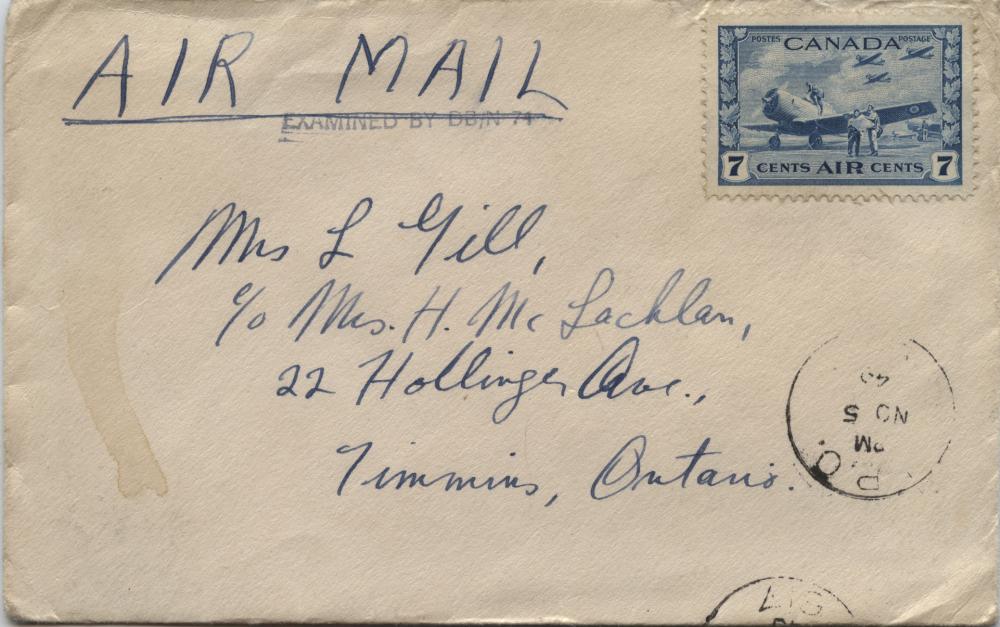 AIR MAIL
EXAMINED BY DB/N 71
POSTES CANADA POSTAGE
7 CENTS AIR CENTS 7
Mrs L Gill,
c/o Mrs. H. Mc Lachlan,
22 Hollinger Ave.,
Timmins, Ontario.
PM
NO 5